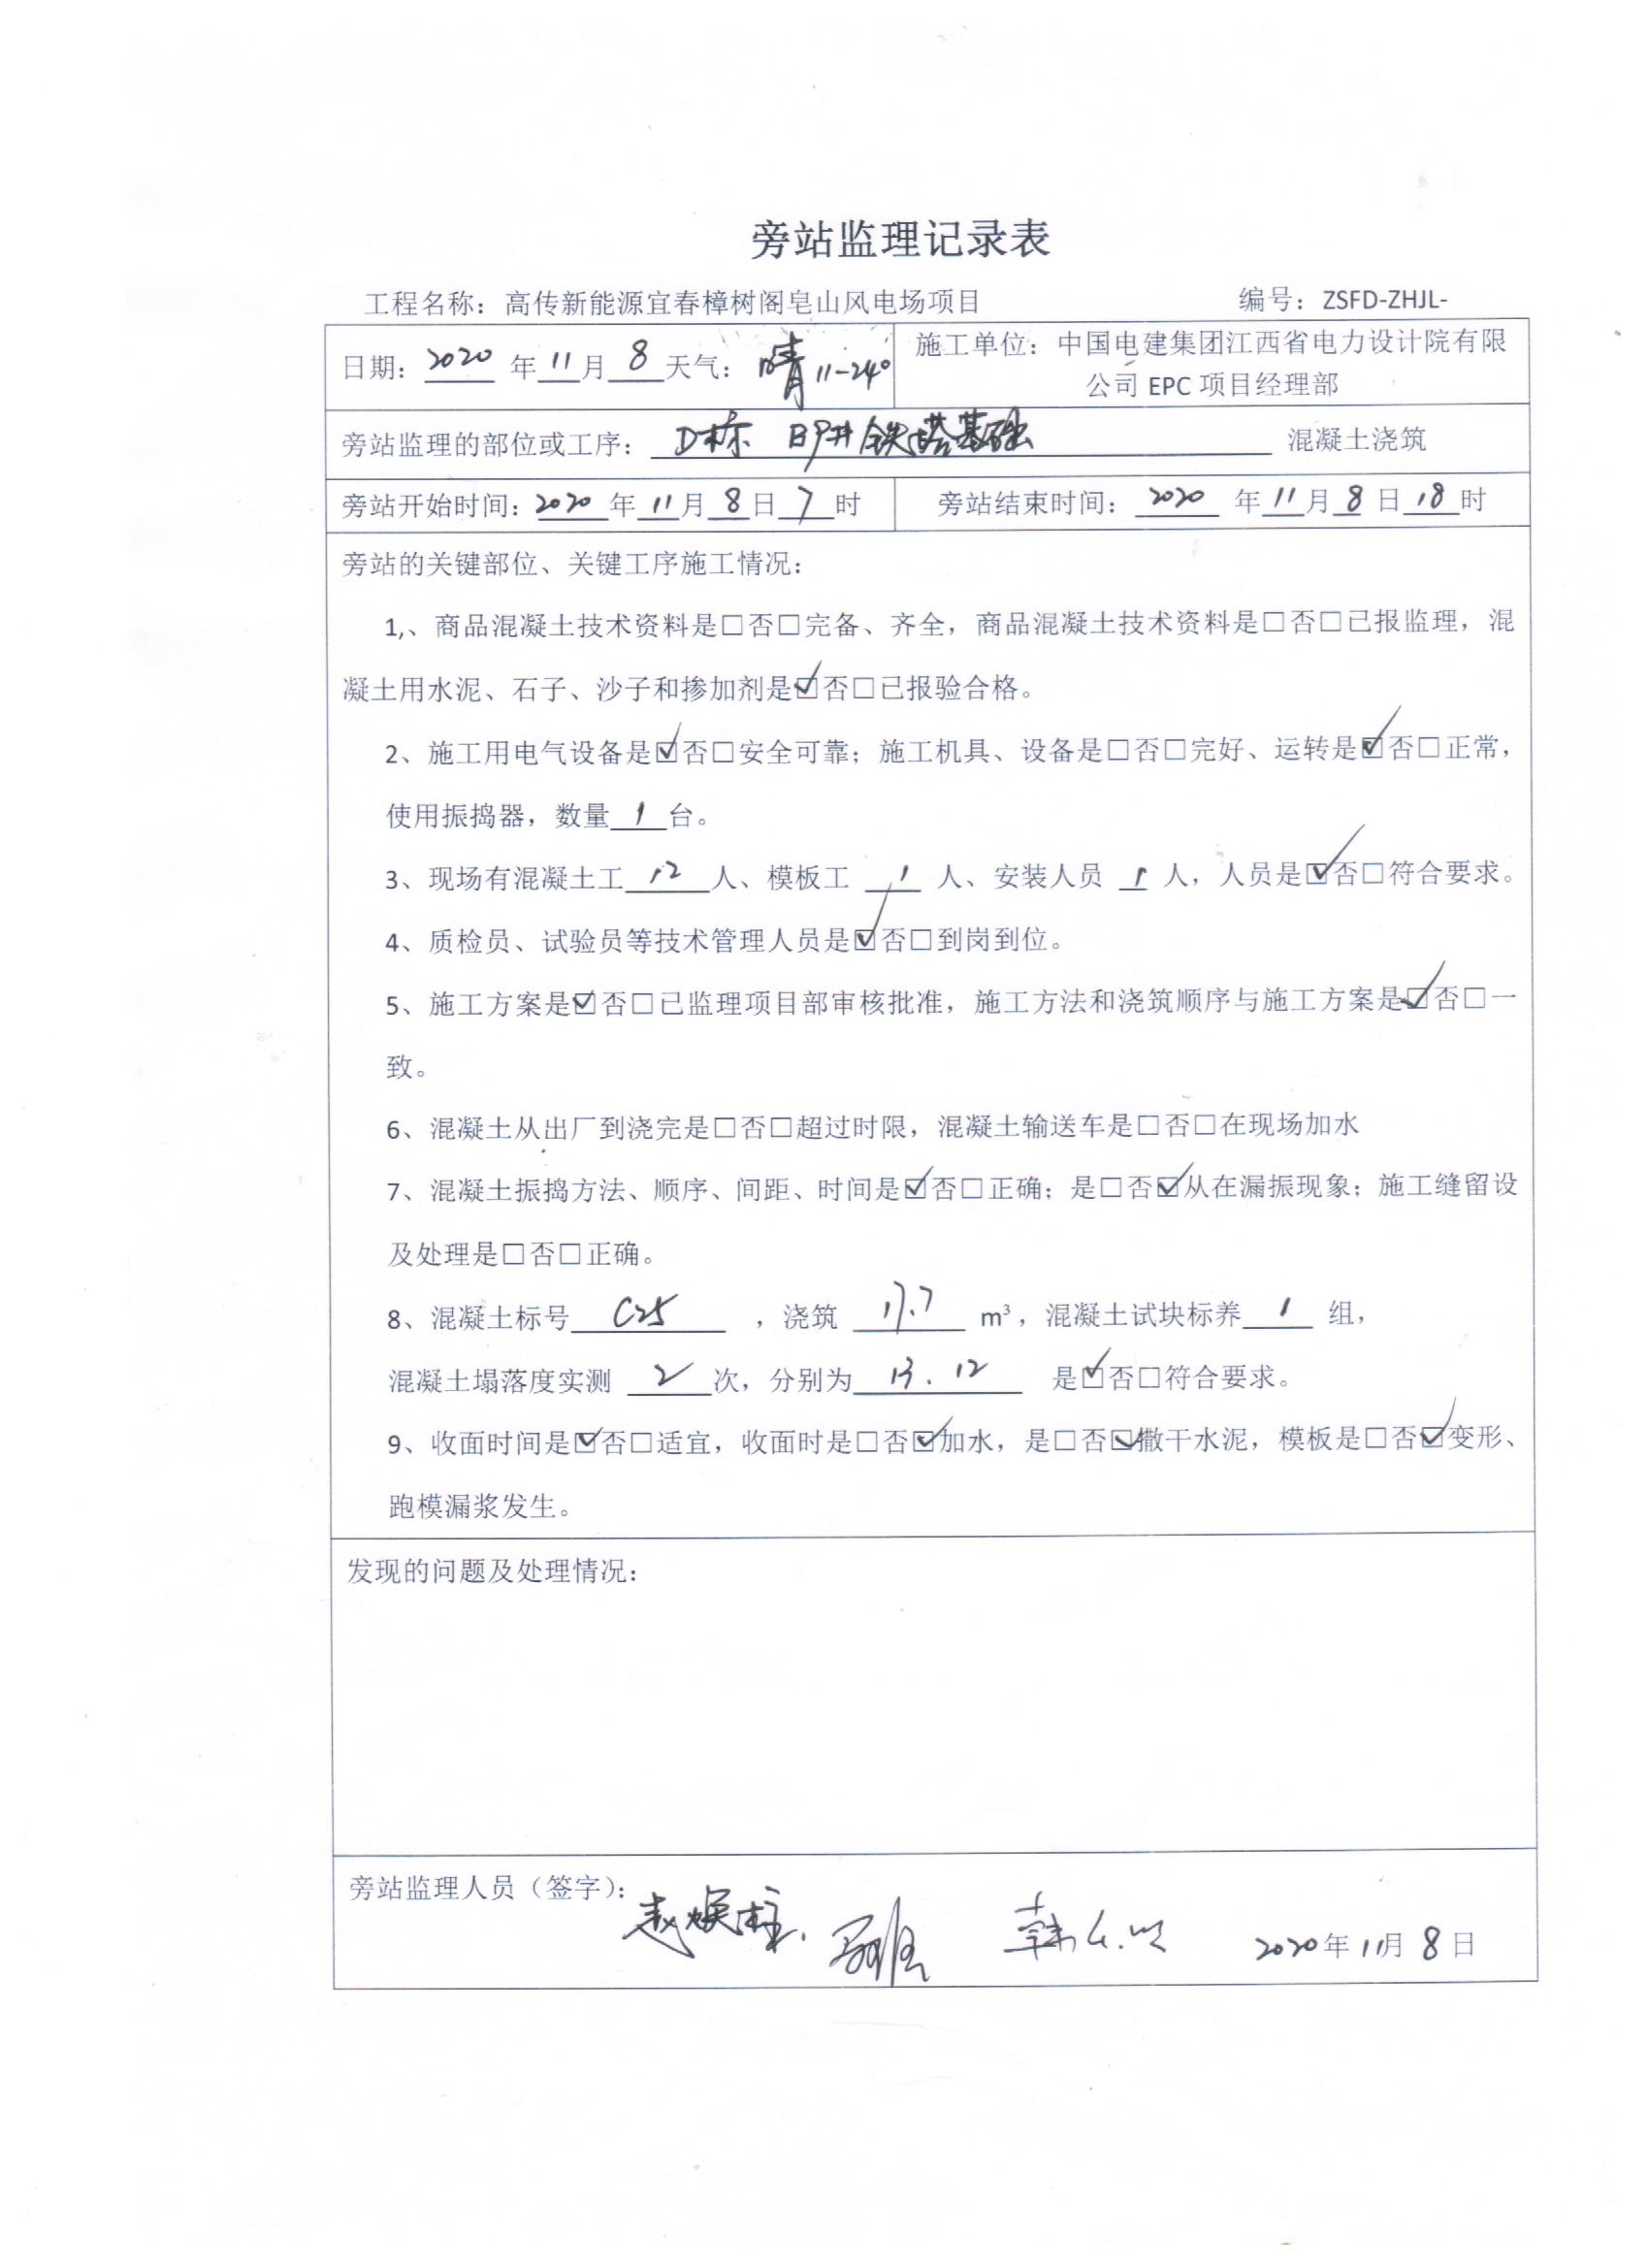 旁站监理记录表
工程名称：高传新能源宜春樟树阁皂山风电场项目 编号：ZSFD-ZHJL-
日期：2020年11月8天气：晴11-24° 施工单位：中国电建集团江西省电力设计院有限
公司 EPC 项目经理部
旁站监理的部位或工序：D标 铁塔基础 混凝土浇筑
旁站开始时间：2020年11月8日7时 旁站结束时间：2020年11月8日18时
旁站的关键部位、关键工序施工情况：
1,、商品混凝土技术资料是□否□完备、齐全，商品混凝土技术资料是□否□已报监理，混
凝土用水泥、石子、沙子和掺加剂是☑否□已报验合格。
2、施工用电气设备是☑否□安全可靠；施工机具、设备是□否□完好、运转是☑否□正常，
使用振捣器，数量1台。
3、现场有混凝土工12人、模板工1人、安装人员1人，人员是☑否□符合要求。
4、质检员、试验员等技术管理人员是☑否□到岗到位。
5、施工方案是☑否□已监理项目部审核批准，施工方法和浇筑顺序与施工方案是☑否□一
致。
6、混凝土从出厂到浇完是□否□超过时限，混凝土输送车是□否□在现场加水
7、混凝土振捣方法、顺序、间距、时间是☑否□正确；是□否☑从在漏振现象；施工缝留设
及处理是□否□正确。
8、混凝土标号C25，浇筑17.7m³，混凝土试块标养1组，
混凝土塌落度实测2次，分别为13.12是☑否□符合要求。
9、收面时间是☑否□适宜，收面时是□否☑加水，是□否☑撒干水泥，模板是□否☑变形、
跑模漏浆发生。
发现的问题及处理情况：
旁站监理人员（签字）：
2020年11月8日